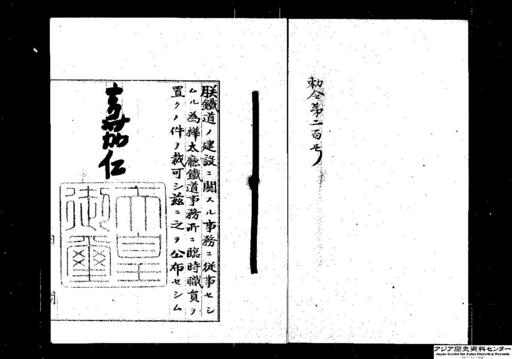 勅令第二百号
朕鐵道ノ建設ニ関スル事務ニ従事セシ
ムル為樺太廳鐵道事務所ニ臨時職員ヲ
置クノ件ヲ裁可シ茲ニ之ヲ公布セシム
嘉仁
天皇
御璽
アジア歴史資料センター
Japan Center for Asian Historical Records